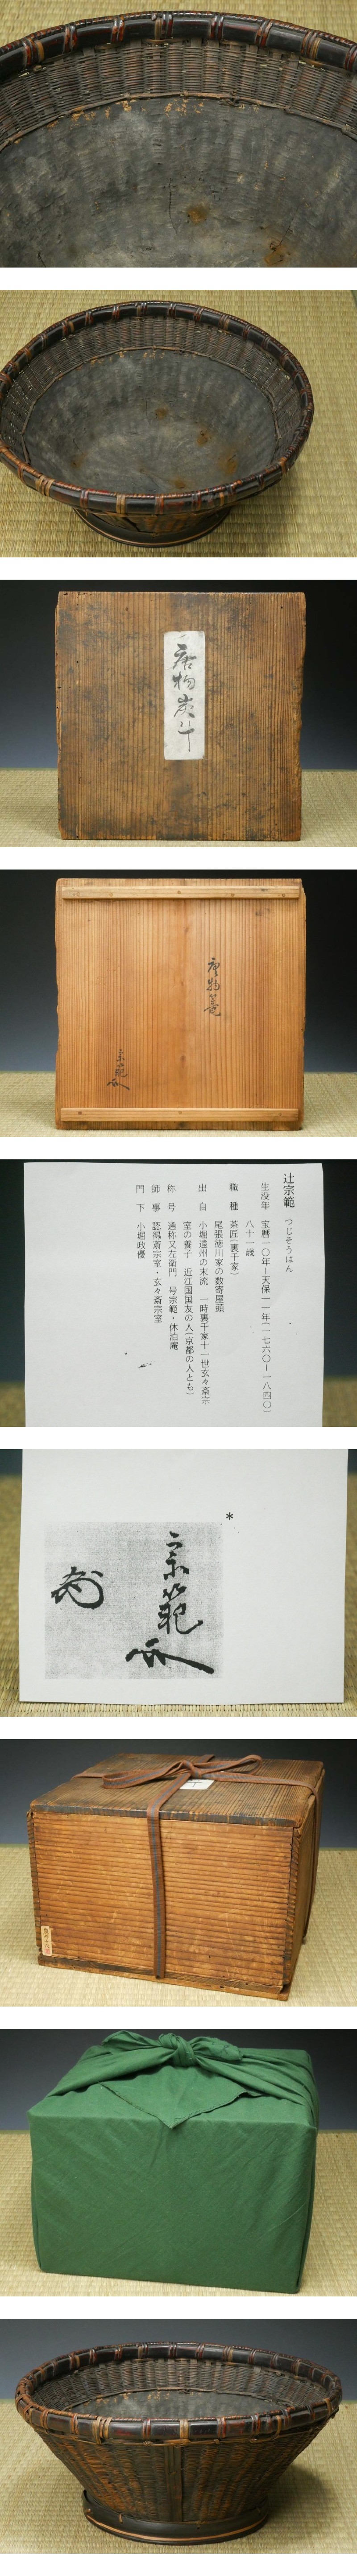 唐物炭斗
唐物篭
宗範
辻宗範 つじそうはん
生没年 宝暦一〇年―天保一一年(一七六〇―一八四〇)
八十一歳
職種 茶匠(裏千家)
尾張徳川家の数寄屋頭
出自 小堀遠州の末流 一時裏千家十一世玄々斎宗
室の養子 近江国国友の人(京都の人とも)
称号 通称又左衛門 号宗範・休泊庵
師事 認得斎宗室・玄々斎宗室
門下 小堀政優
*
宗範